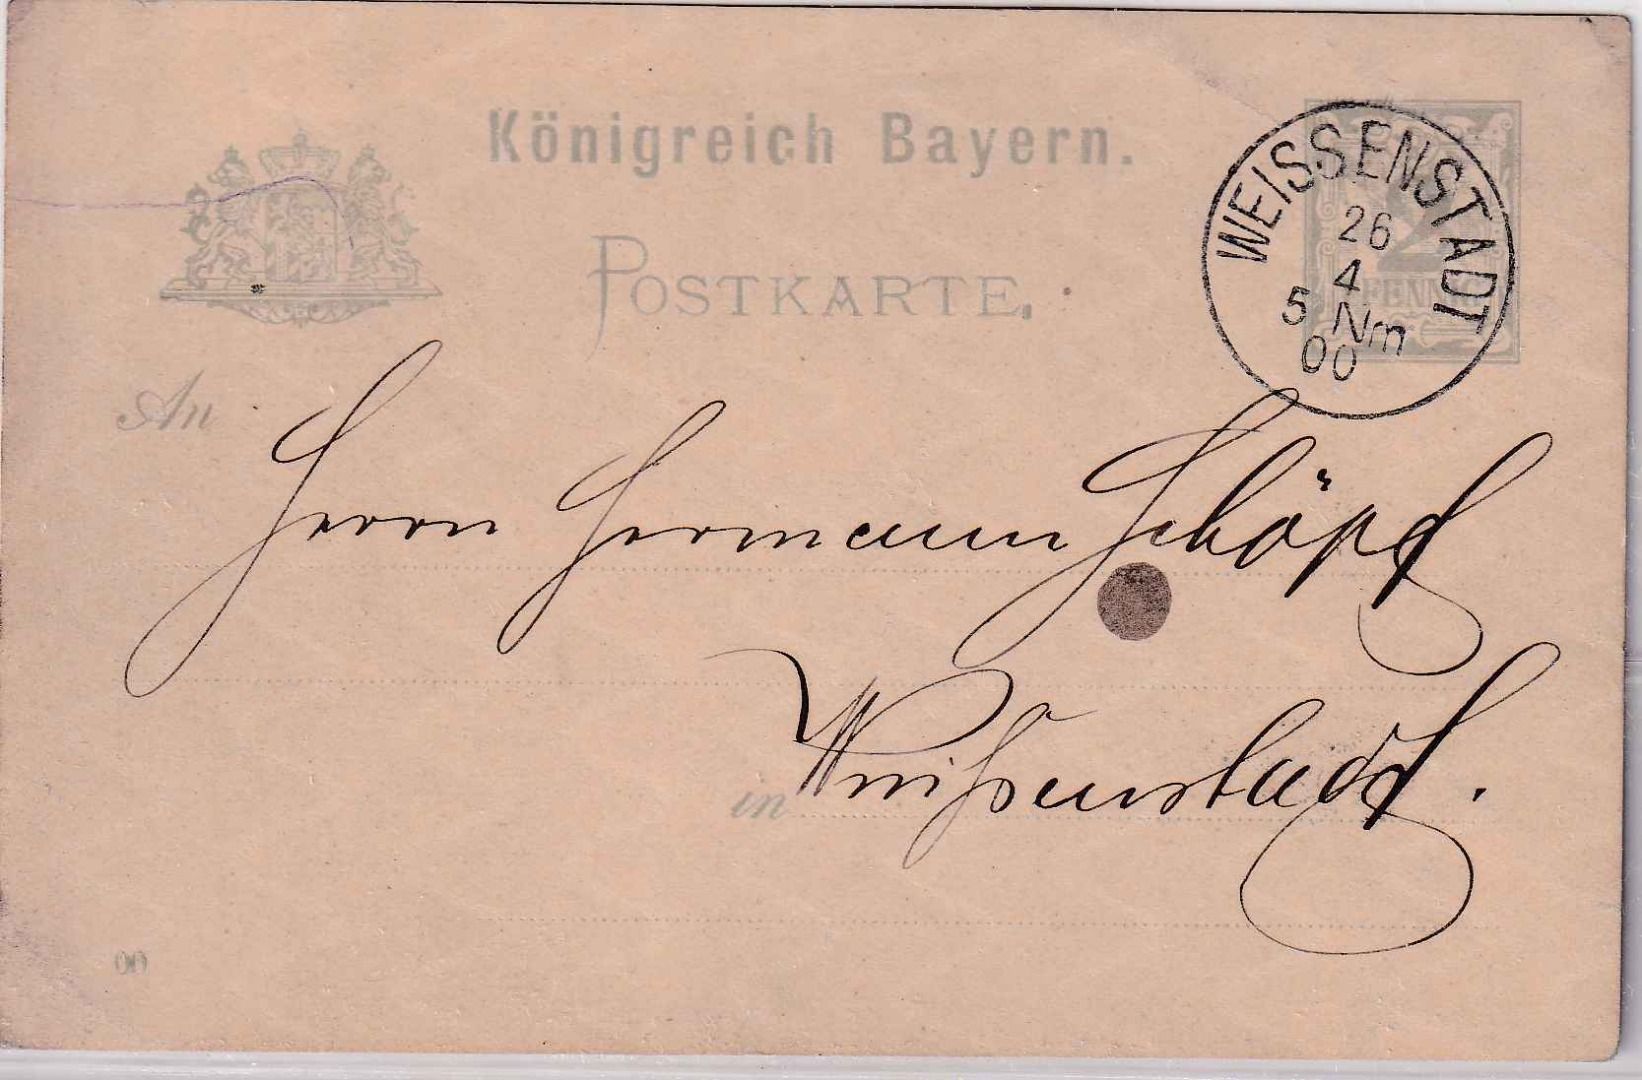 Königreich Bayern.
POSTKARTE.
WEISSENSTADT
26
4
5 Nm
00
2
PFENNIG
An
Herrn Hermann Schöpf
in Weißenstadt.
00